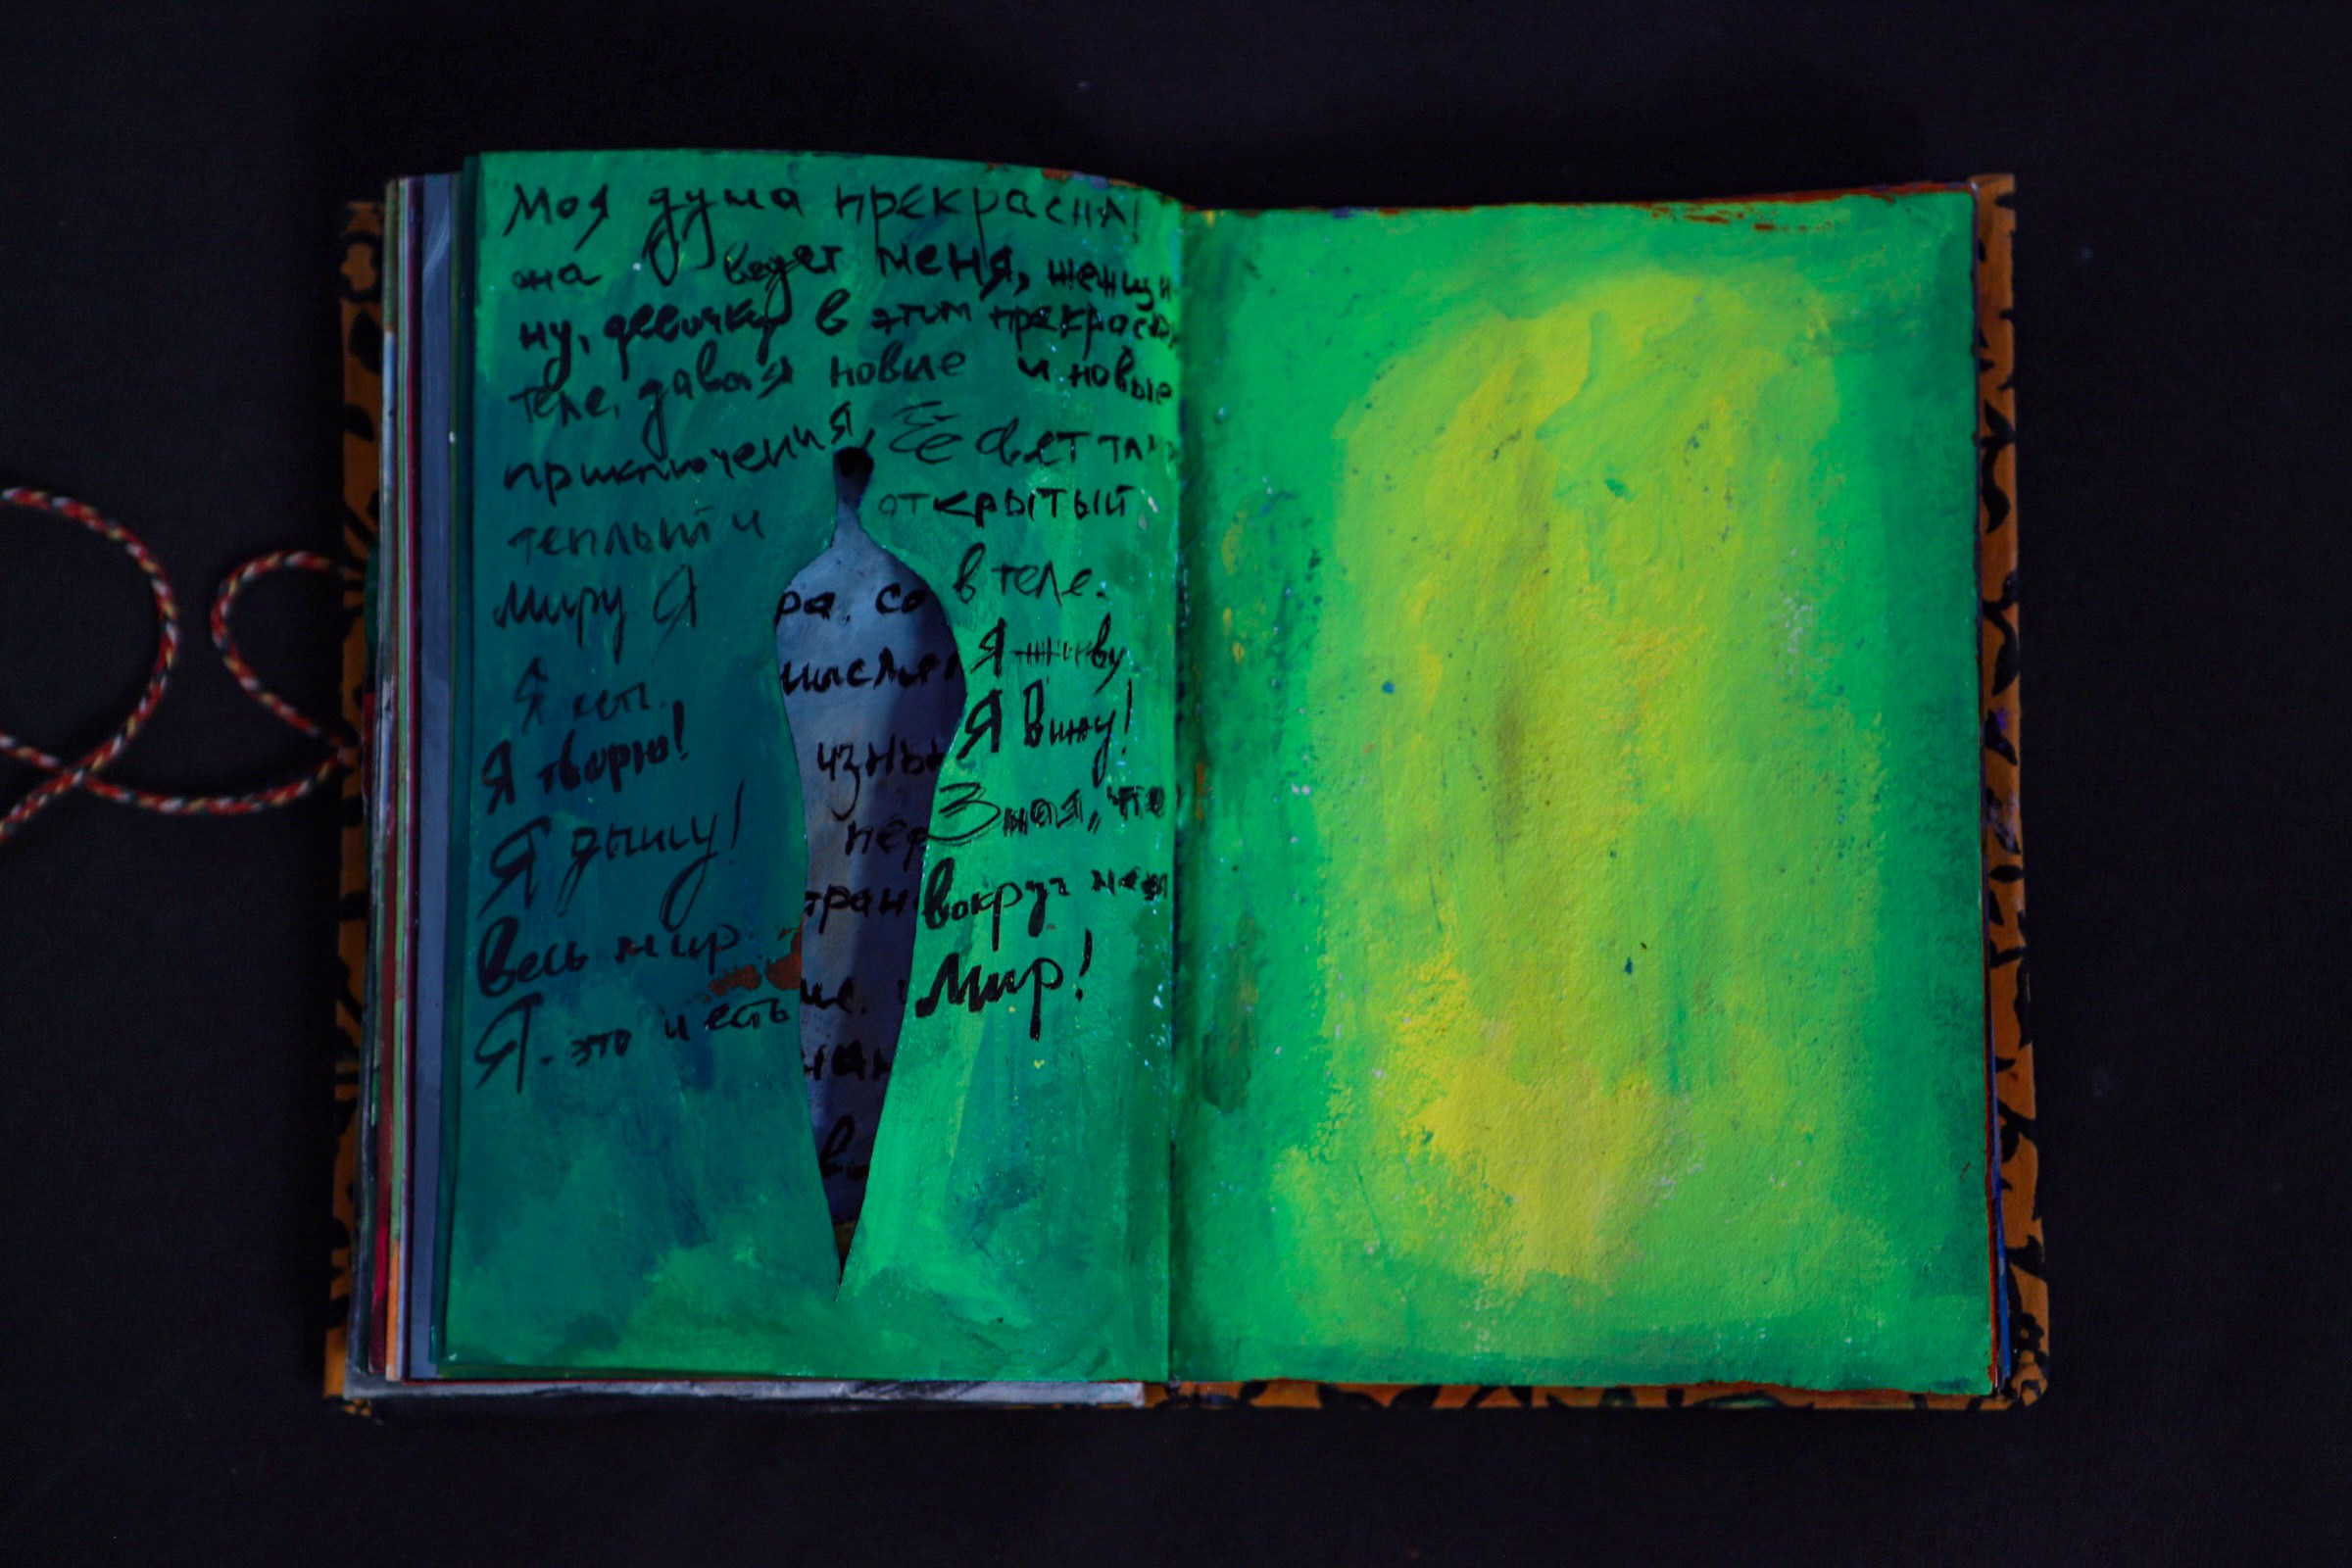 Моя душа прекрасна!
она ведет меня, женщи
ну, девочку в этом прекрасн
теле, давая новые и новые
приключения, Её свет так
теплый и открытый
миру Я ра, со в теле.
Я есть. мысли Я живу
Я творю! изны Я вижу!
Я дышу! пер Зная, что
весь мир тран вокруг меня
Я - это и есть ше. Мир!
нан